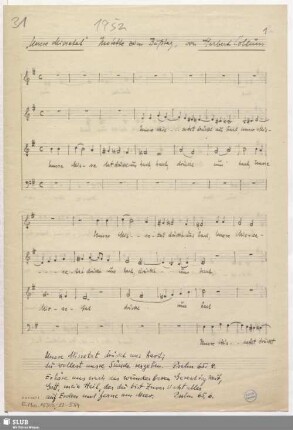 31
1952
1.
"Unsre Missetat" Motette zum Bußtag, von Herbert Collum
Unsre Misse-tat drückt uns hart, unsre Mis-
Unsre Misse-tat drückt uns hart, drückt uns hart, unsre
Unsre Mis-se-tat drückt uns hart, unsre Misse-
se-tat drückt uns hart, drückt uns hart
Mis-se-tat drückt uns hart
Unsre Mis-se-tat drückt
Unsre Missetat drückt uns hart,
du wollest unsre Sünde vergeben. Psalm 65,4.
Erhöre uns nach der wunderbaren Gerechtigkeit,
Gott, unser Heil, der du bist Zuversicht aller
auf Erden und ferne am Meer. Psalm 65,6.
SLUB